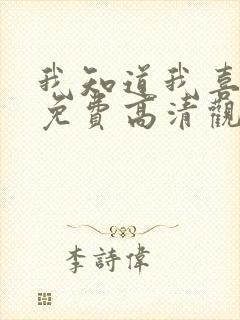 我知道我喜
免費高清觀
李詩偉